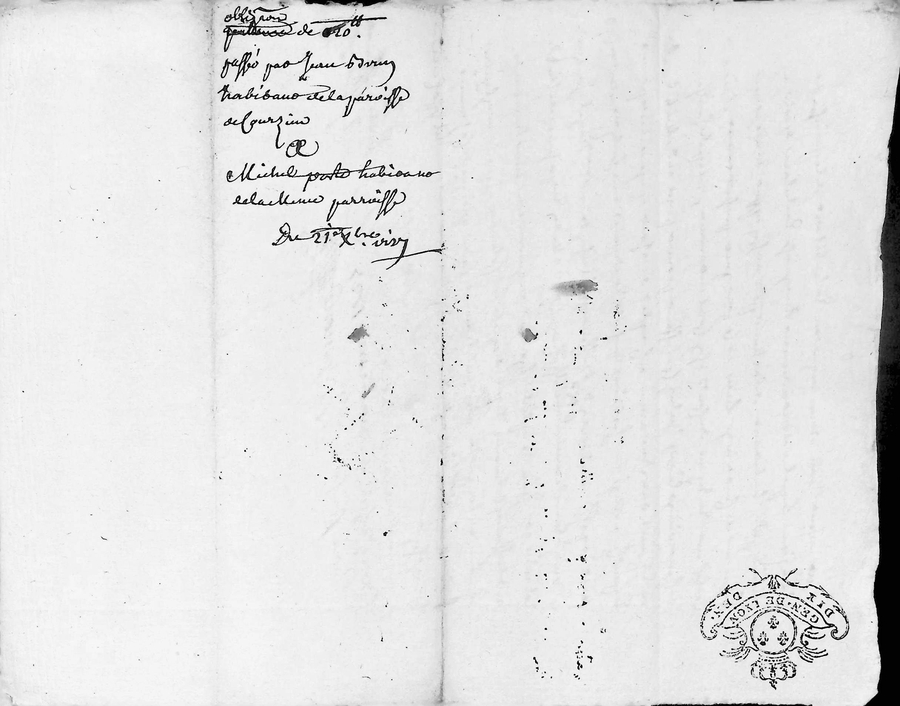 obligaon
quittance de 210ᵗᵗ.
passé par Jean
habitant de la paroisse
de Courzieu
&
Michel poste habitant
de la Meme parroisse
Du 21ᵉ Xbre
GEN. DE LYON
DIX DEN.